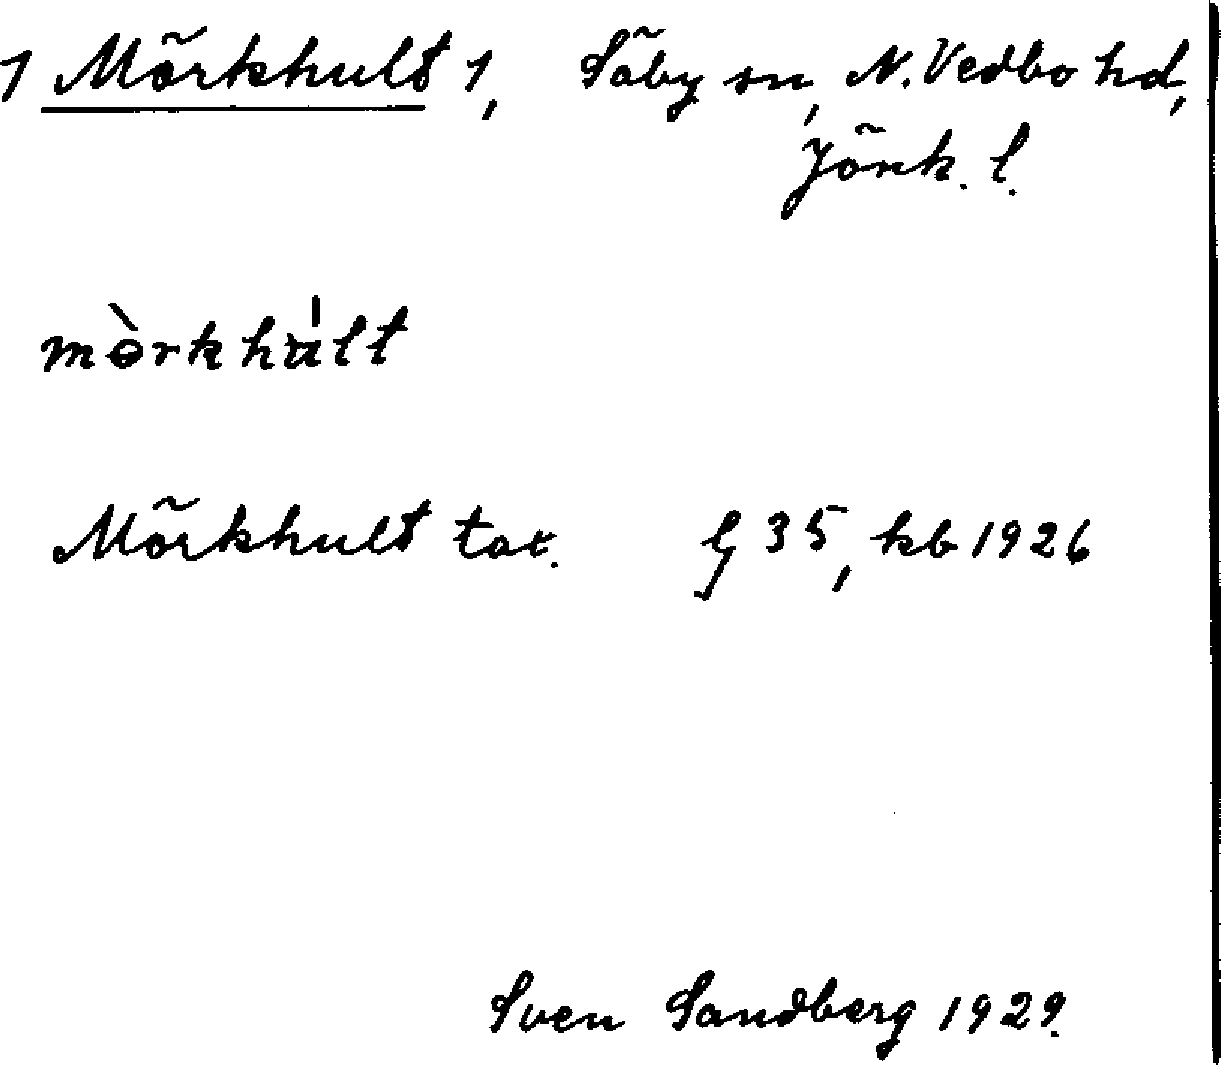 1 Mörkhult 1, Säby sn, N. Vedbo hd,
Jönk. l.
mòrkhu̍lt
Mörkhult tax. lj 35, kb 1926
Sven Sandberg 1929.